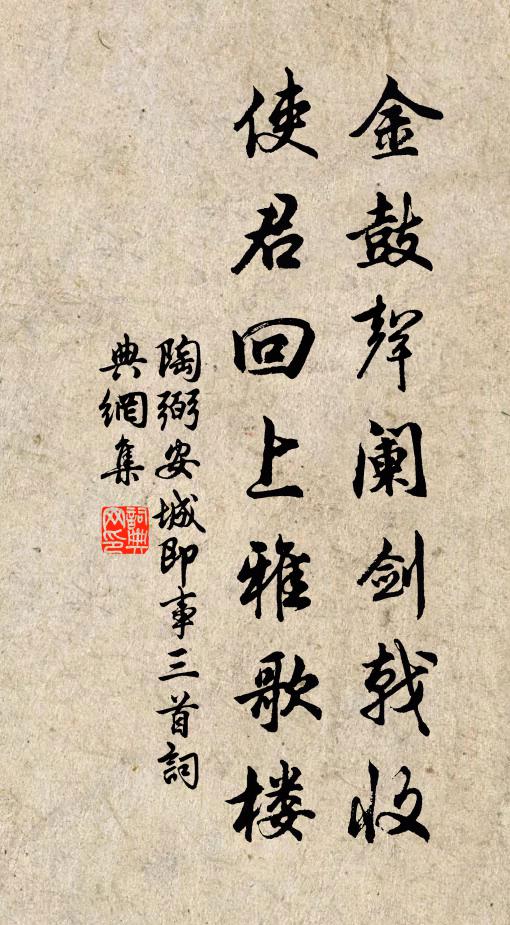 金鼓聲阑剑戟收
使君回上雅歌楼
陶弼安城即事三首詞
典網集
詞典网印